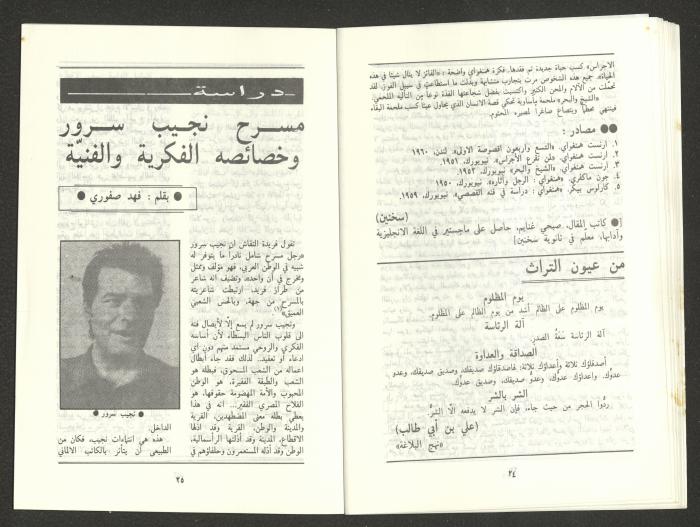 الاجراس» كسب حياة جديدة ثم فقدها. فكرة همنغواي واضحة: «الفائز لا ينال شيئا في هذه
الحياة». جميع هذه الشخوص مرت بتجارب متشابهة وبذلت ما استطاعت في سبيل الفوز. لقد
تحملت من الآلام والمحن الكثير واكتسبت بفضل شجاعتها الفذة نوعا من التأليه الملحمي.
«الشيخ والبحر» ملحمة مأساوية تحكي قصة الانسان الذي يحاول عبثا كسب ملحمة البقاء،
فينتهي محطما ويتصاع صاغرا لمصيره المحتوم.
●● مصادر :
١. ارنست همنغواي، «التسع وأربعون اقصوصة الاولى». لندن، ١٩٦٠
٢. ارنست همنغواي. «لمن تقرع الأجراس». نيويورك، ١٩٥١.
٣. ارنست همنغواي. «الشيخ والبحر» نيويورك، ١٩٥٢.
٤. جون ماكفري. «همنغواي : الرجل وآثاره». نيويورك، ١٩٥٠
٥. كارلوس بيكر. همنغواي : دراسة في فنه القصصي» نيويورك، ١٩٥٩.
(سخنين)
[● كاتب المقال، صبحي غنايم، حاصل على ماجستير في اللغة الانجليزية
وآدابها، معلّم في ثانوية سخنين]
من عيون التراث
يوم المظلوم
يوم المظلوم على الظالم أشد من يوم الظالم على المظلوم.
آلة الرئاسة
آلة الرئاسة سَعَةُ الصدرِ.
الصداقة والعداوة
أصدقاؤك ثلاثة وأعداؤك ثلاثة: فأصدقاؤك صديقك، وصديق صديقك، وعدو
عدوُّك. وأعداؤك عدوك، وعدو صديقك، وصديق عدوِّك.
الشر بالشر
ردُّوا الحجر من حيث جاء، فإن الشر لا يدفعه الّا الشرُّ.
(علي بن أبي طالب)
«نهج البلاغة»
٢٤
دراسة
مسرح نجيب سرور
وخصائصه الفكرية والفنيّة
● بقلم : فهد صفوري ●
تقول فريدة النقاش ان نجيب سرور
«رجل مسرح شامل نادرا ما يتوفر له
شبيه في الوطن العربي، فهو مؤلف وممثل
ومخرج في آن واحد». وتضيف انه شاعر
من طراز فريد، ارتبطت شاعريته
بالمسرح من جهة، وبالحس الشعبي
العميق»(١)
ونجيب سرور لم يسع إلّا لأيصال فنه
الى قلوب الناس البسطاء لأن أساسه
الفكري والروحي مستمد منهم دون أي
ادعاء أو تعقيد.. لذلك فقد جاء أبطال
اعماله من الشعب المسحوق، فبطله هو
الشعب والطبقة الفقيرة، هو الوطن
المحبوب والأمة المهضومة حقوقها، هو
الفلاح المصري الفقير... انه في هذا
يعطي بطله معنى المضطهدين، القرية
والمدينة والوطن، القرية وقد اذلها
الاقطاع، المدينة وقد أذلتها الرأسمالية،
الوطن وقد أذله المستعمرون وحلفاؤهم في
● نجيب سرور ●
الداخل.
هذه هي انتماءات نجيب، فكان من
الطبيعي أن يتأثر بالكاتب الالماني
٢٥